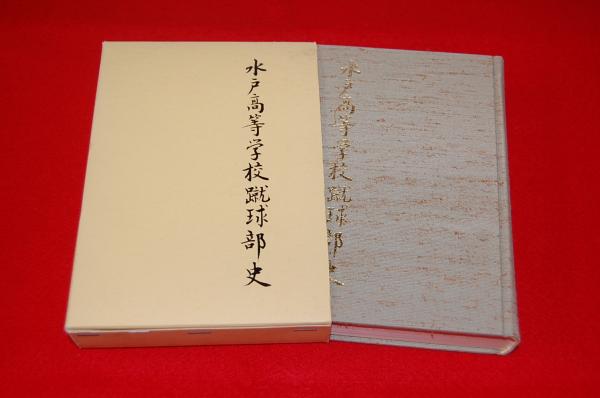 水戸高等学校蹴球部史
水戸高等学校蹴球部史